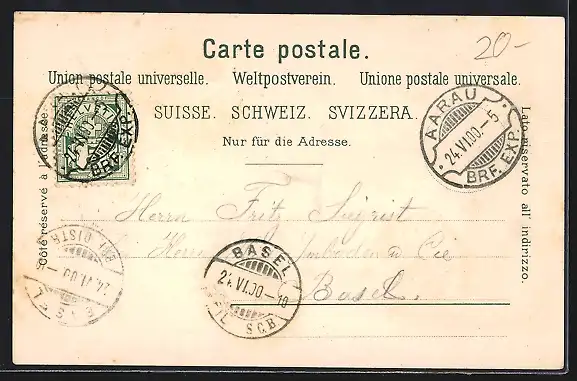 20-
Carte postale.
Union postale universelle. Weltpostverein. Unione postale universale.
SUISSE. SCHWEIZ. SVIZZERA.
Nur für die Adresse.
Côté réservé à l'adresse.
Lato riservato all' indirizzo.
BRF. EXP.
AARAU
24.VI.00-5
BRF. EXP.
Herrn Fritz Siegrist
Herrn Imboden & Cie
Basel.
BASEL
24.VI.00-10
SCB